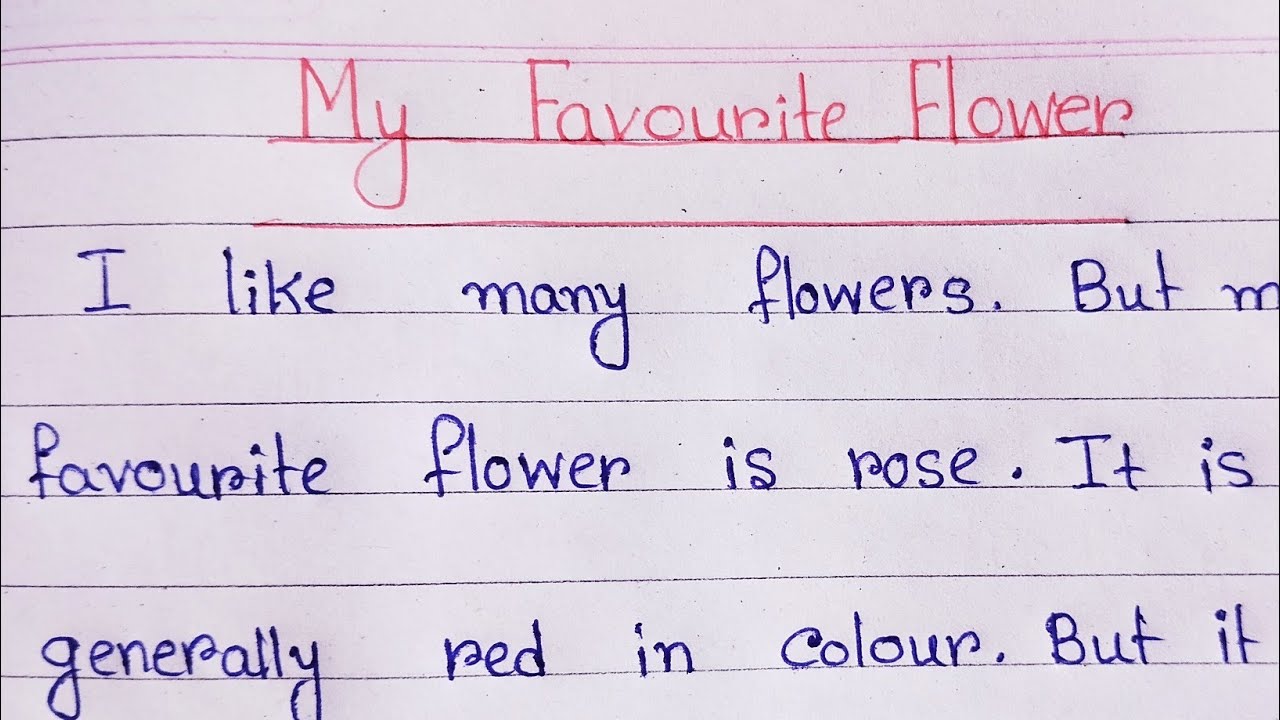 My Favourite Flower
I like many flowers. But m
favourite flower is rose. It is
generally red in colour. But it